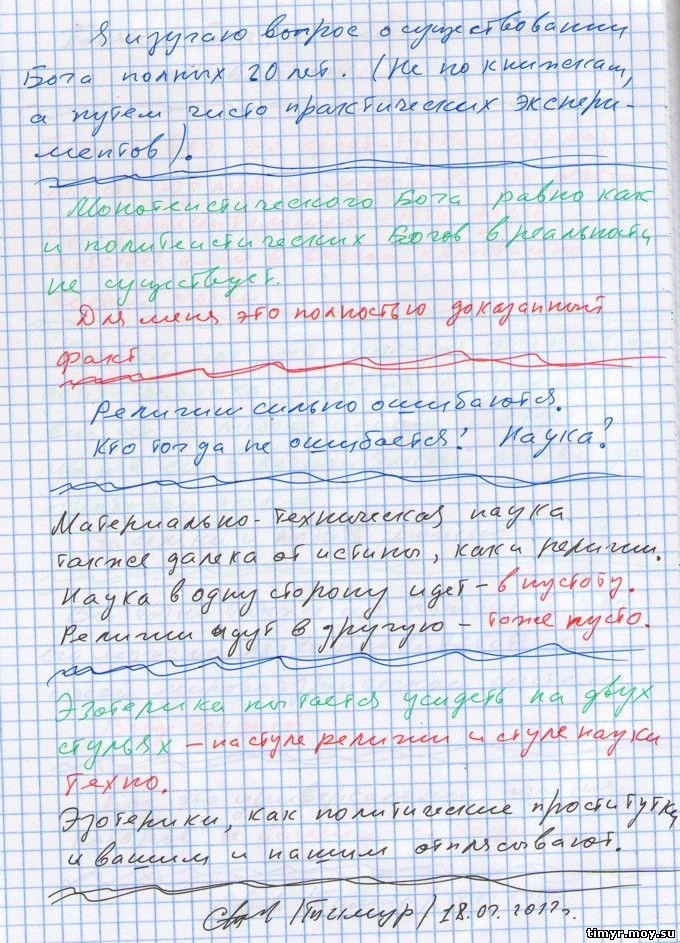 Я изучаю вопрос о существовании
Бога полных 20 лет. (Не по книжкам,
а путем чисто практических экспери-
ментов).
Монотеистического Бога равно как
и политеистических Богов в реальности
не существует.
Для меня это полностью доказанный
факт
Религии сильно ошибаются.
Кто тогда не ошибается? Наука?
Материально-техническая наука
также далека от истины, как и религии.
Наука в одну сторону идет – в пустоту.
Религии идут в другую – тоже пусто.
Эзотерика пытается усидеть на двух
стульях – на стуле религии и стуле науки
техно.
Эзотерики, как политические проститутки,
и вашим и нашим отплясывают.
/Тимур/ 18.07.2017г.
timyr.moy.su